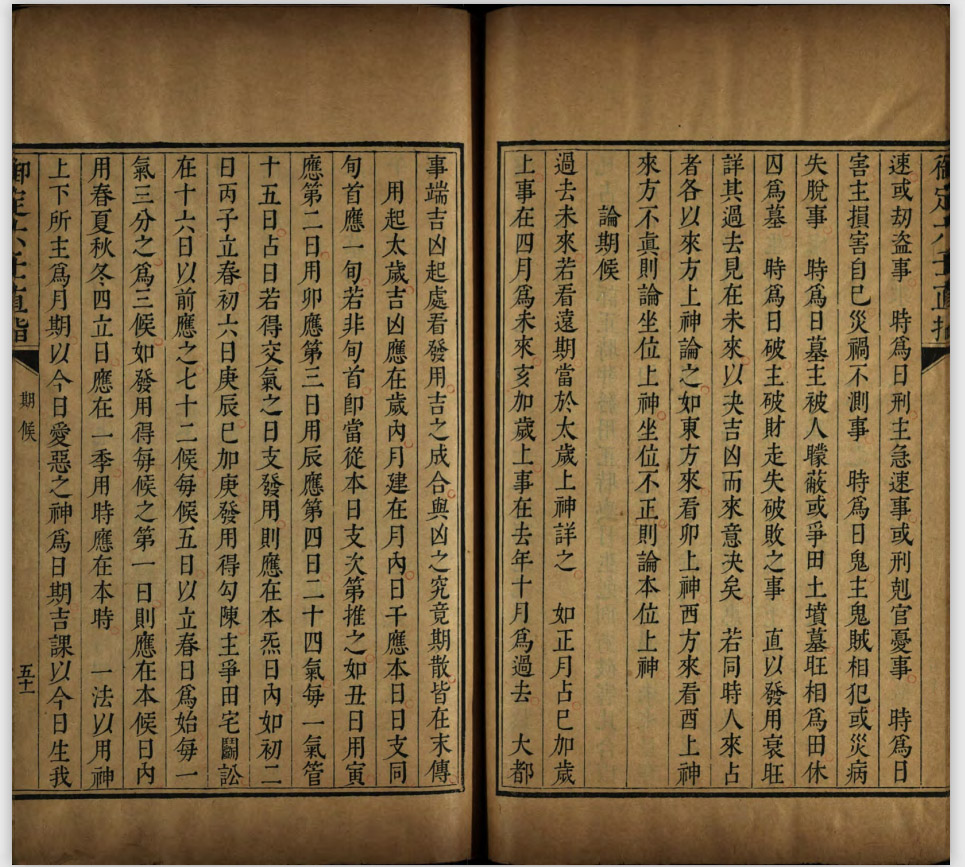 御定六壬直指
速或刧盜事　時爲日刑主急速事或刑剋官憂事　時爲日
害主損害自己災禍不測事　時爲日鬼主鬼賊相犯或災病
失脫事　時爲日墓主被人矇蔽或爭田土墳墓旺相爲田休
囚爲墓　時爲日破主破財走失破敗之事　直以發用衰旺
詳其過去見在未來以决吉凶而來意决矣　若同時人來占
者各以來方上神論之如東方來看卯上神西方來看酉上神
來方不眞則論坐位上神坐位不正則論本位上神
論期候
過去未來若看遠期當於太歲上神詳之　如正月占巳加歲
上事在四月爲未來亥加歲上事在去年十月爲過去　大都
事端吉凶起處看發用吉之成合與凶之究竟期散皆在末傳
用起太歲吉凶應在歲內月建在月內日干應本日日支同
旬首應一旬若非旬首卽當從本日支次第推之如丑日用寅
應第二日用卯應第三日用辰應第四日二十四氣每一氣管
十五日占日若得交氣之日支發用則應在本炁日內如初二
日丙子立春初六日庚辰巳加庚發用得勾陳主爭田宅鬭訟
在十六日以前應之七十二候每候五日以立春日爲始每一
氣三分之爲三候如發用得每候之第一日則應在本候日內
用春夏秋冬四立日應在一季用時應在本時　一法以用神
上下所主爲月期以今日愛惡之神爲日期吉課以今日生我
御定六壬直指
期候
五十一